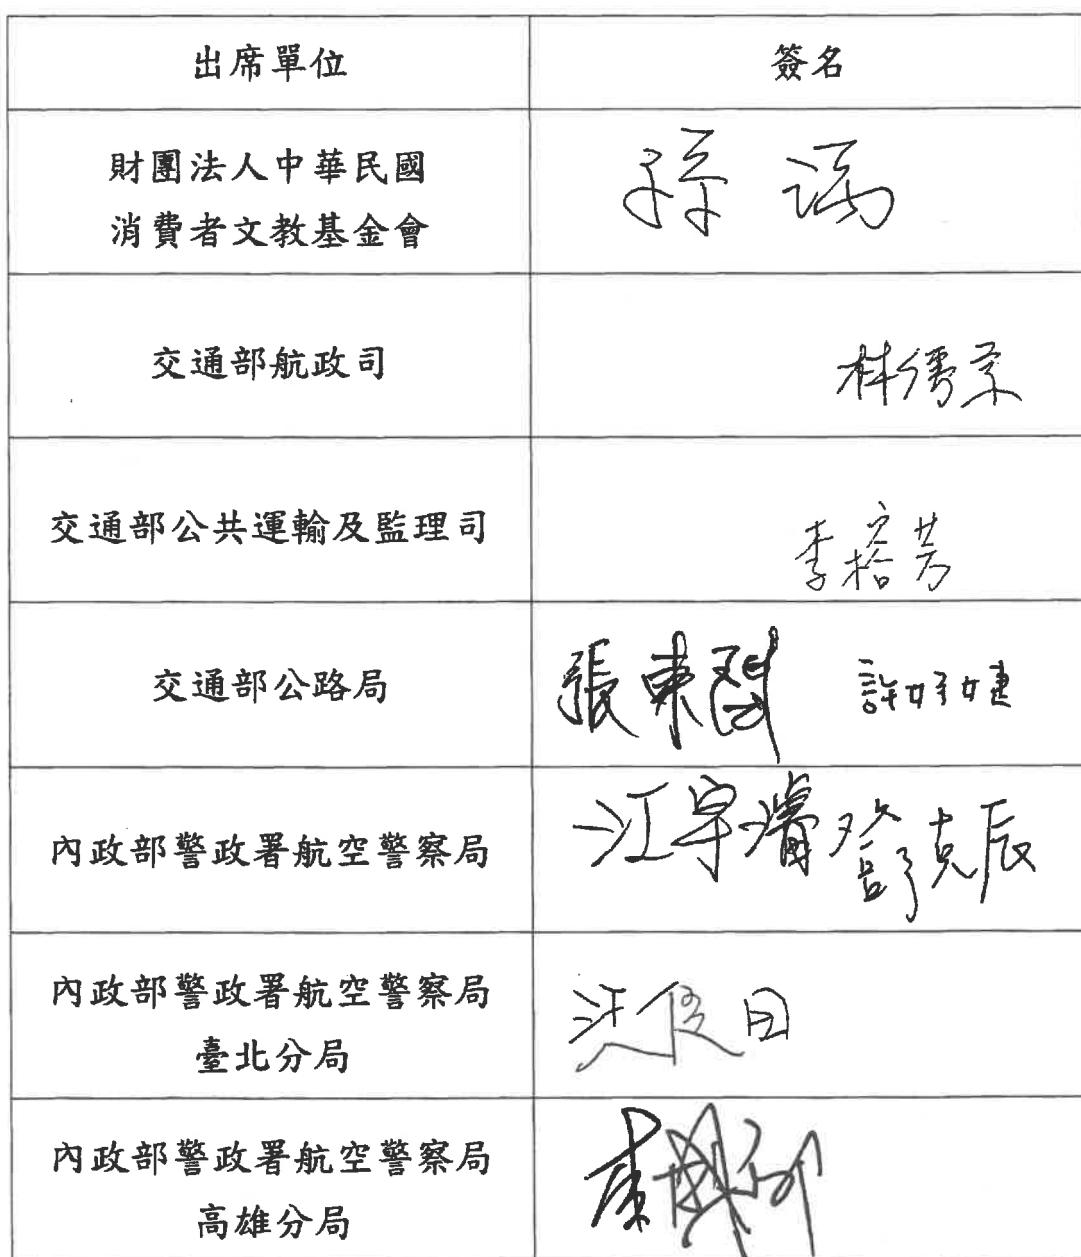 出席單位
簽名
財團法人中華民國
消費者文教基金會
孫
交通部航政司
林
交通部公共運輸及監理司
李榕芳
交通部公路局
張東
許妤婕
內政部警政署航空警察局
江宇濬
鄧克辰
內政部警政署航空警察局
臺北分局
內政部警政署航空警察局
高雄分局